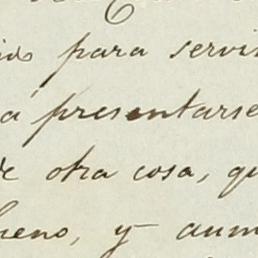 para servi
a presentarse
de otra cosa, qu
ueno, y aum